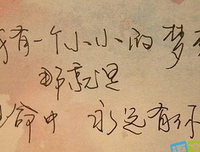 我有一个小小的梦
那就是
命中 永远有你